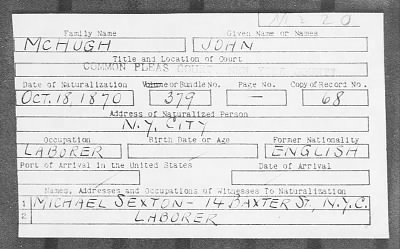 M 2 20
Family Name Given Name or Names
McHUGH JOHN
Title and Location of Court
COMMON PLEAS COURT
Date of Naturalization Volume or Bundle No. Page No. Copy of Record No.
OCT. 18, 1870 379 — 68
Address of Naturalized Person
N.Y. CITY
Occupation Birth Date or Age Former Nationality
LABORER ENGLISH
Port of Arrival in the United States Date of Arrival
Names, Addresses and Occupations of Witnesses To Naturalization
1 MICHAEL SEXTON - 14 BAXTER ST., N.Y.C.
2 LABORER